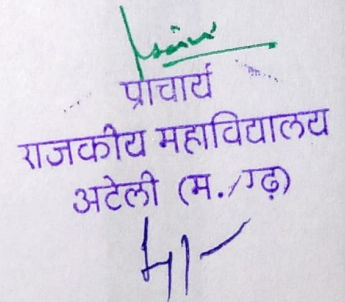 प्राचार्य
राजकीय महाविद्यालय
अटेली (म./गढ़)